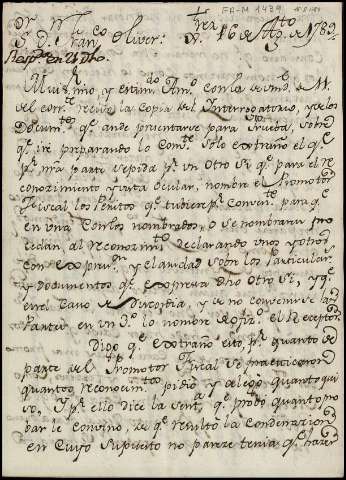 FA-M 1439
Sr. Dn. Franco. Oliver: 16 de Agto. de 1789
Resp. en 21 dho.
Mui Sr. mio y estimdo. Amo. con la de Vmd. de 11
del corrte. recivo la Copia del Interrogatorio, y de los
Documtos. qe. ande presentarse para Prueba, sobre
qe. iré preparando lo Comte. Solo extraño el qe.
pr. nra parte se pida pr. un Otro Si qe. para el re
conozimiento y vista ocular, nombre el Promotor
Fiscal los Peritos qe. tubiere pr. Convente. para qe.
en una con los nombrados, o se nombraren pro
cedan al reconozimto. declarando unos y otros
con expresn. y claridad sobre los Particular
y documentos qe. expresa dho Otro Si, y qe.
en el Caso de Discordia, y de no convenirse las
Partes en un 3o. lo nombre de ofizo. el Receptor
Digo qe. extraño esto, pr. quanto de
parte del Promotor Fiscal se practicaron
quantos reconocimtos. pidio y alego quanto qui
so, y pr. ello dice la Senta. qe. probo quanto pro
bar le convino, de qe. resultó la Condenazion
en Cuyo Supuesto no pareze tenia qe. hazer